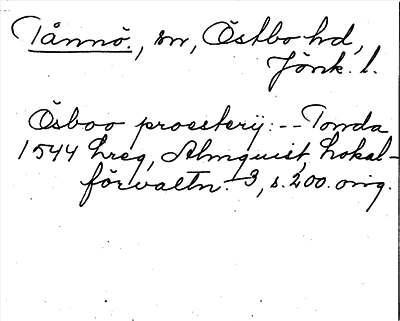 Tånnö., sn, Östbo hd,
Jönk. l.
Ösboo proesterij: -- Tonda
1544 hreg, Almquist, Lokal-
förvaltn. 3, s. 200. orig.